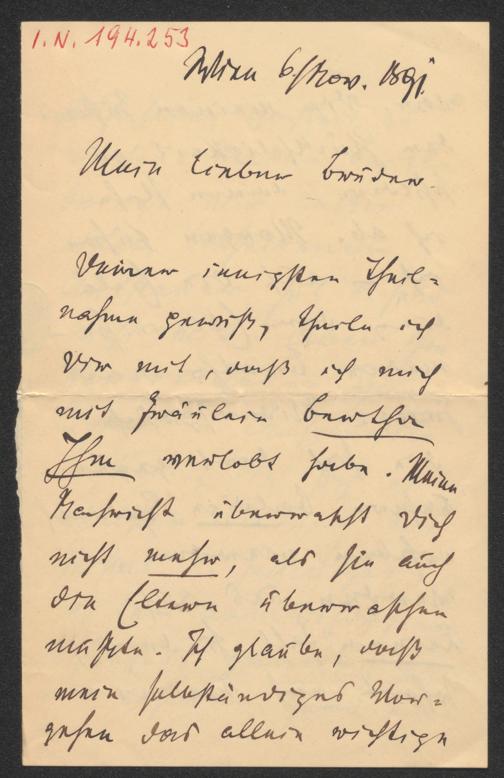 I. N. 194.253
Wien 6/Nov. 1891.
Mein lieber Bruder.
Deiner innigsten Theil-
nahme gewiß, theile ich
Dir mit, daß ich mich
mit Fräulein Bertha
Ihm verlobt habe. Meine
Nachricht überrascht Dich
nicht mehr, als sie auch
die Eltern überraschen
mußte. Ich glaube, daß
mein selbständiges Vor-
gehen das allein richtige